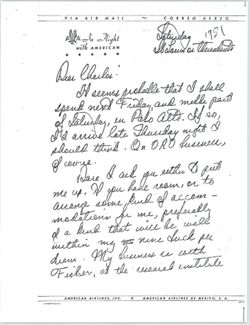 VIA AIR MAIL — CORREO AEREO
In Flight
with AMERICAN
Saturday
Dear Charles:
It seems probable that I shall
spend next Friday, and maybe part
of Saturday, in Palo Alto. If so,
I'd arrive late Thursday night I
should think. On ORO business,
of course.
Dare I ask you either to put
me up, if you have room, or to
arrange some kind of accom-
modations for me, preferably
of a kind that will be well
within my nine buck per
diem. My business is with
Fisher, at the research institute
AMERICAN AIRLINES, INC. AMERICAN AIRLINES DE MEXICO, S. A.